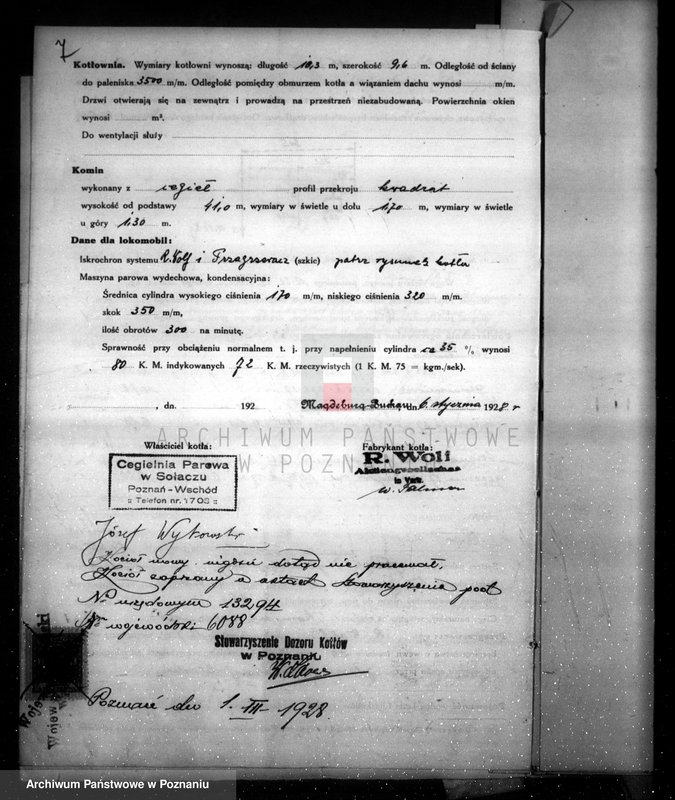 7
Kotłownia. Wymiary kotłowni wynoszą: długość 10,3 m, szerokość 9,6 m. Odległość od ściany
do paleniska 3500 m/m. Odległość pomiędzy obmurzem kotła a wiązaniem dachu wynosi m/m.
Drzwi otwierają się na zewnątrz i prowadzą na przestrzeń niezabudowaną. Powierzchnia okien
wynosi m².
Do wentylacji służy
Komin
wykonany z cegieł profil przekroju kwadrat
wysokość od podstawy 41,0 m, wymiary w świetle u dołu 1,70 m, wymiary w świetle
u góry 1,30 m.
Dane dla lokomobil:
Iskrochron systemu R. Wolf i (szkic) patrz rysunek kotła
Maszyna parowa wydechowa, kondensacyjna:
Średnica cylindra wysokiego ciśnienia 170 m/m, niskiego ciśnienia 320 m/m.
skok 350 m/m,
ilość obrotów 300 na minutę.
Sprawność przy obciążeniu normalnem t. j. przy napełnieniu cylindra ca 35 % wynosi
80 K. M. indykowanych 72 K. M. rzeczywistych (1 K. M. 75 = kgm./sek).
, dn. 192 Magdeburg-Buckau dn 6 stycznia 1928 r
ARCHIWUM PAŃSTWOWE
W POZNANIU
Właściciel kotła: Fabrykant kotła:
Cegielnia Parowa
w Sołaczu
Poznań-Wschód
Telefon nr. 1703
R. Wolf
Aktiengesellschaft
Józef Wykowski
Kocioł nowy, nigdzie dotąd nie pracował.
Kocioł zapisany w aktach Stowarzyszenia pod
No urzędowym 13294
No wojewódzki 6088
Stowarzyszenie Dozoru Kotłów
w Poznaniu
Poznań dn 1. III. 1928.
Archiwum Państwowe w Poznaniu